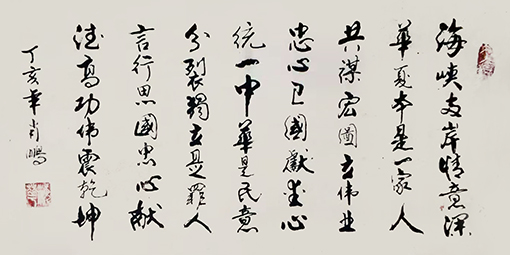 海峡两岸情意深
華夏本是一家人
共谋宏圖立伟业
忠心卫國獻爱心
統一中華是民意
分裂獨立是罪人
言行思國忠心献
德高功伟震乾坤
丁亥年肖鵬